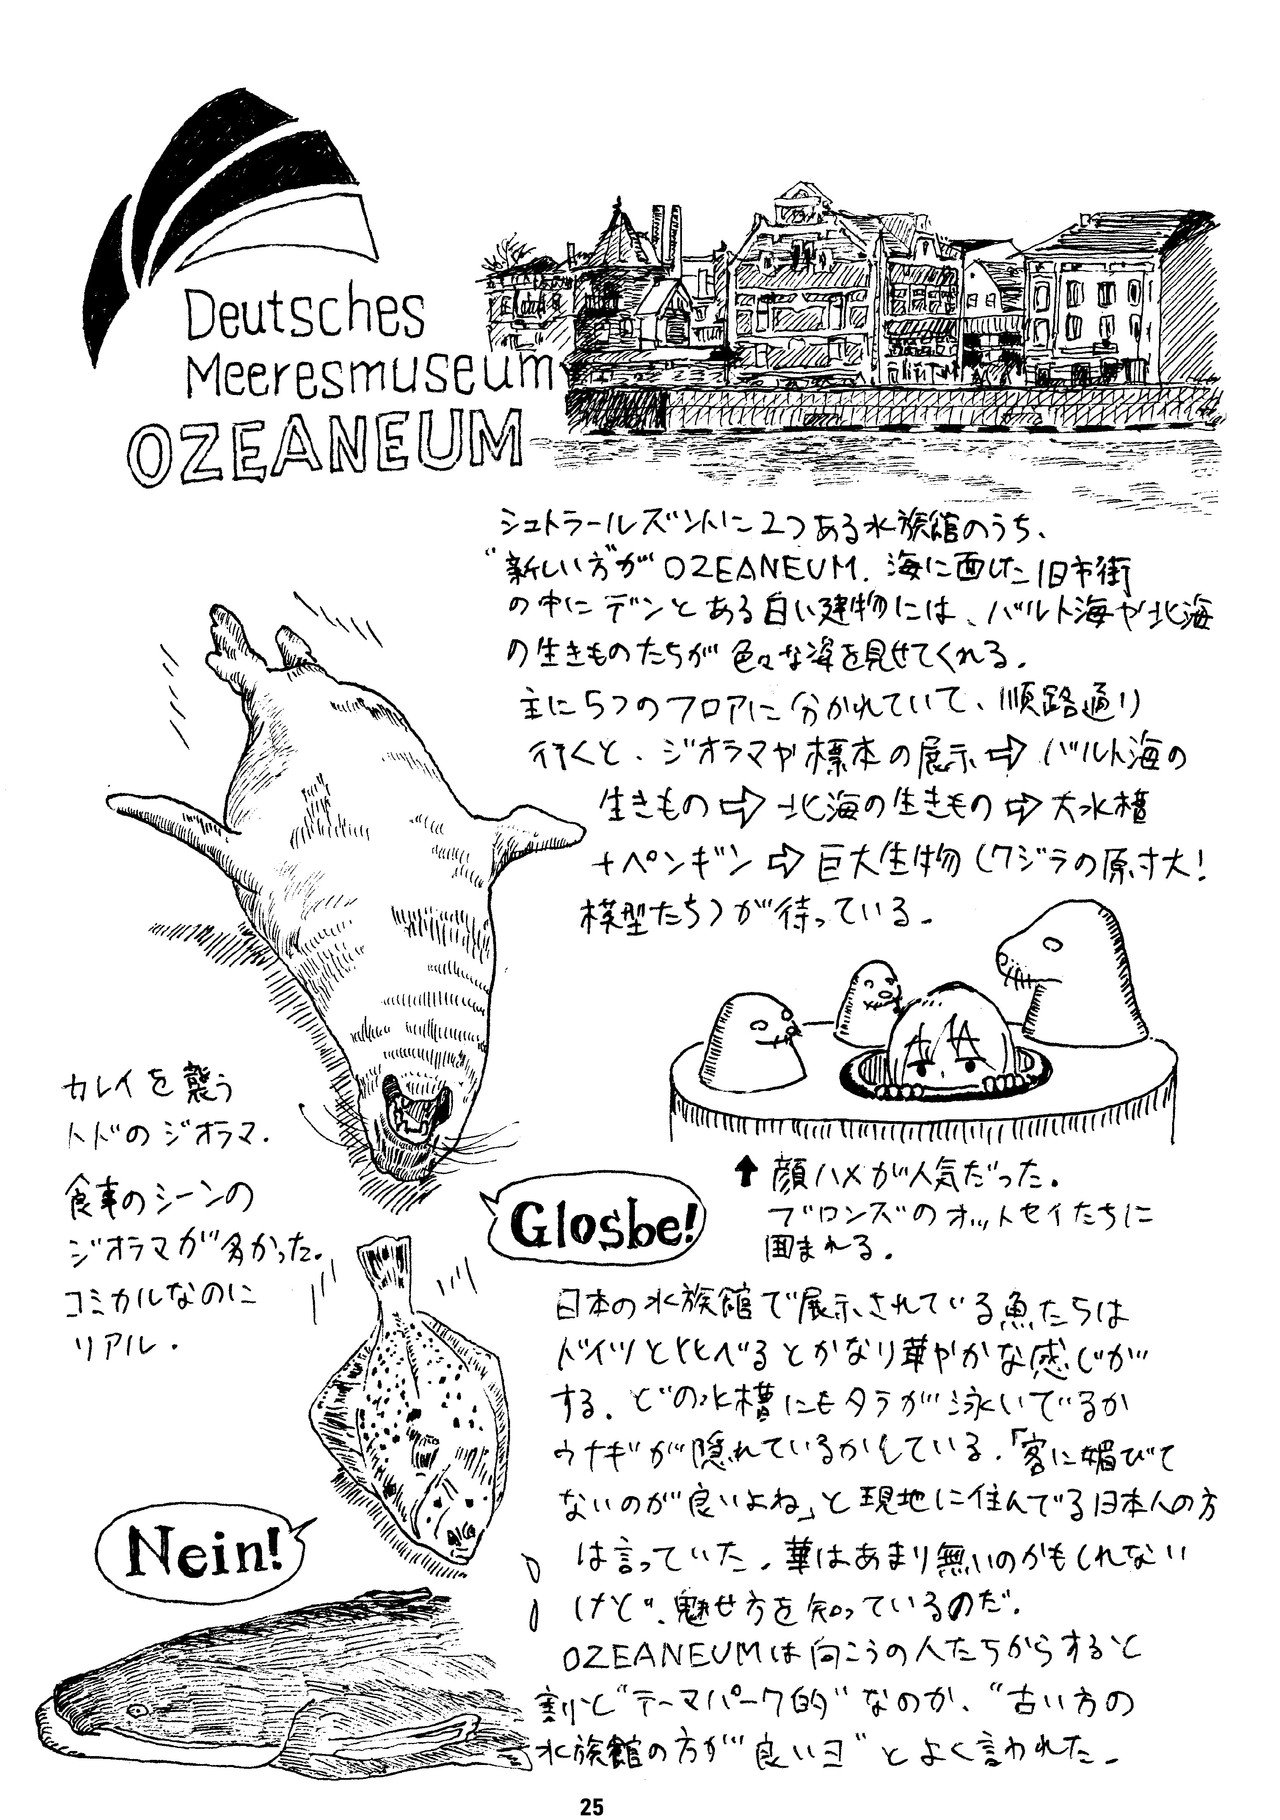 Deutsches
Meeresmuseum
OZEANEUM
シュトラールズントに2つある水族館のうち、
"新しい方"がOZEANEUM. 海に面した旧市街
の中にデンとある白い建物には、バルト海や北海
の生きものたちが色々な姿を見せてくれる.
主に5つのフロアに分かれていて、順路通り
行くと、ジオラマや標本の展示⇨バルト海の
生きもの⇨北海の生きもの⇨大水槽
+ペンギン⇨巨大生物(クジラの原寸大!
模型たち)が待っている.
カレイを襲う
トドのジオラマ.
食事のシーンの
ジオラマが多かった.
コミカルなのに
リアル.
⬆顔ハメが人気だった.
ブロンズのオットセイたちに
囲まれる.
Glosbe!
日本の水族館で展示されている魚たちは
ドイツと比べるとかなり華やかな感じが
する. どの水槽にもタラが泳いでるか
ウナギが隠れているかしている.「客に媚びて
ないのが良いよね」と現地に住んでる日本人の方
は言っていた. 華はあまり無いのかもしれない
けど、魅せ方を知っているのだ.
OZEANEUMは向こうの人たちからすると
割と"テーマパーク的"なのか、"古い方の
水族館の方が良いヨ"とよく言われた.
Nein!
25